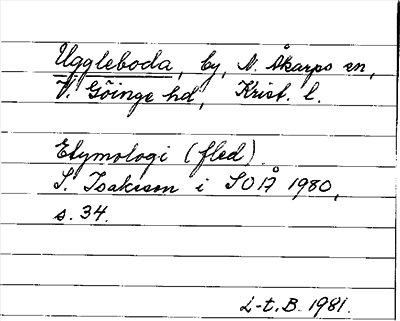 Uggleboda, by, N. Åkarps sn,
V. Göinge hd, Krist. l.
Etymologi (fled).
S. Isaksson i SOÅ 1980,
s. 34.
L-t. B. 1981.